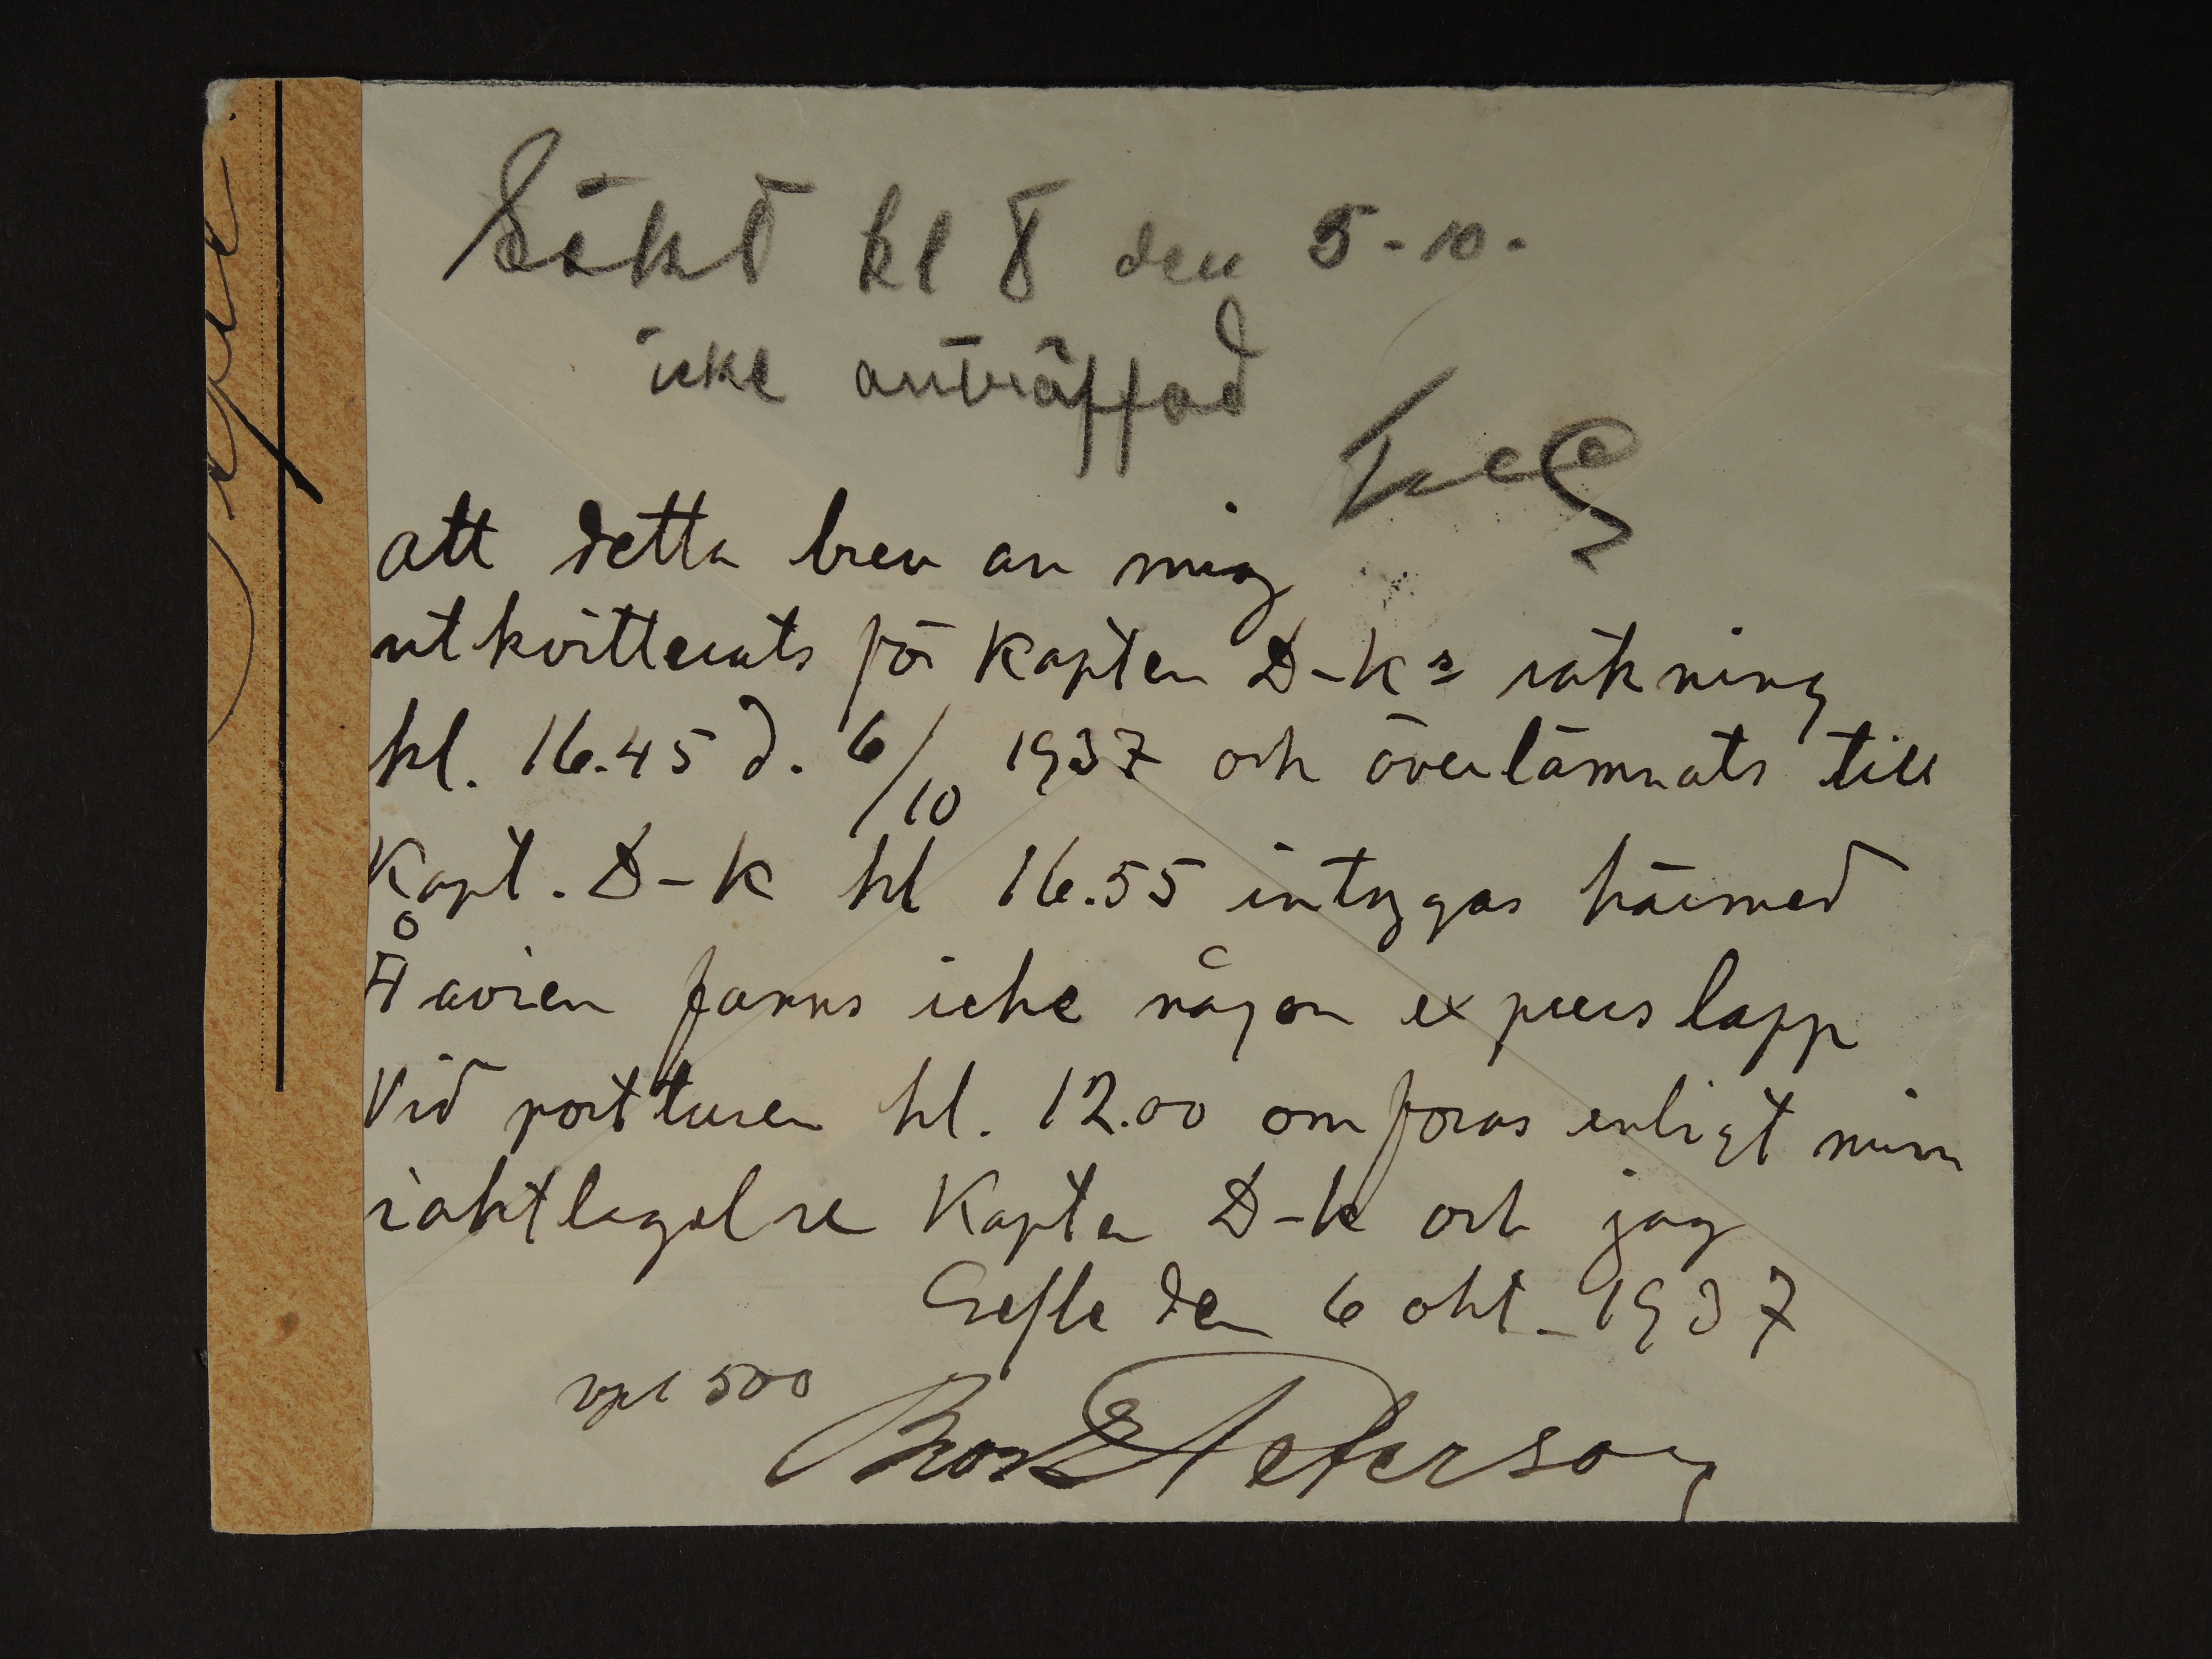 Sökt kl 8 den 5-10.
icke anträffad
att detta brev av mig
utkvitterats för Kapten D-ks räkning
kl. 16.45 d. 6/10 1937 och överlämnats till
Kapt. D-k kl 16.55 intygas härmed
Å avien fanns icke någon expresslapp
Vid postturen kl. 12.00 omfrågas enligt min
iakttagelse Kapten D-k och jag
Gefle den 6 okt. 1937
vpl 500
Peterson